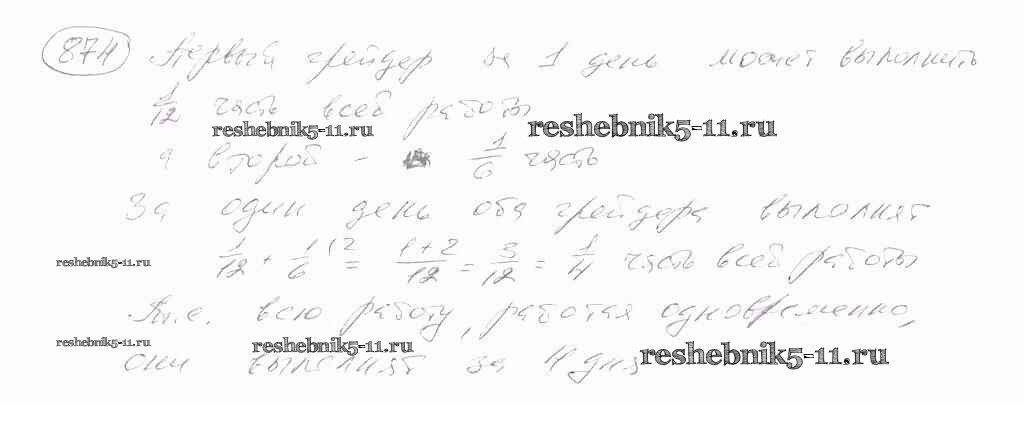 874 Первый грейдер за 1 день может выполнить
1/12 часть всей работы
reshebnik5-11.ru reshebnik5-11.ru
а второй - 1/6 часть
За один день оба грейдера выполнят
1/12 + 1/6 (2 = 1+2/12 = 3/12 = 1/4 часть всей работы
reshebnik5-11.ru
Т.е. всю работу, работая одновременно,
reshebnik5-11.ru reshebnik5-11.ru reshebnik5-11.ru
они выполнят за 4 дня